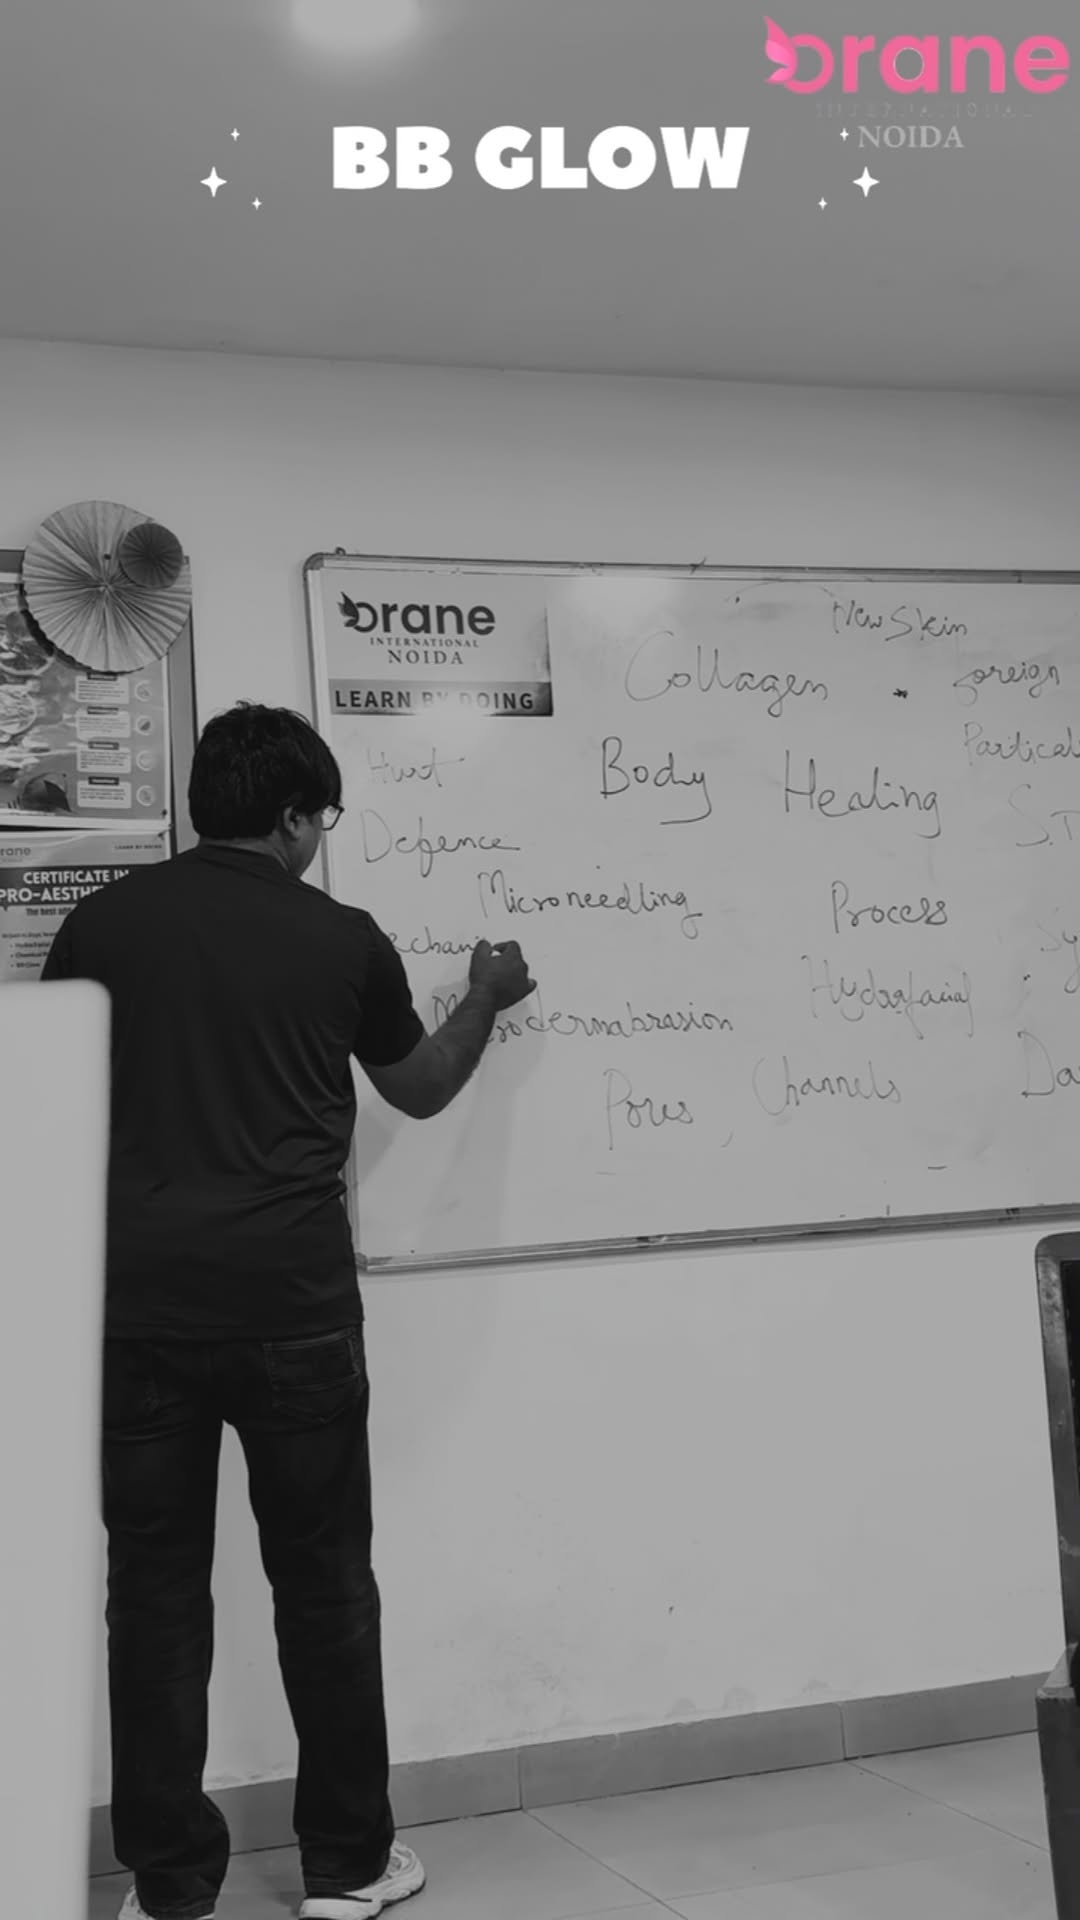 orane
INTERNATIONAL
NOIDA
BB GLOW
orane
INTERNATIONAL
NOIDA
LEARN BY DOING
New Skin
Collagen
Foreign
Partical
Hurt
Body Healing
S.T
Defence
Microneedling
Process
echani
Hydrafacial
Microdermabrasion
Pores, Channels
Da
rane
LEARN BY DOING
CERTIFICATE IN
PRO-AESTHE
The best